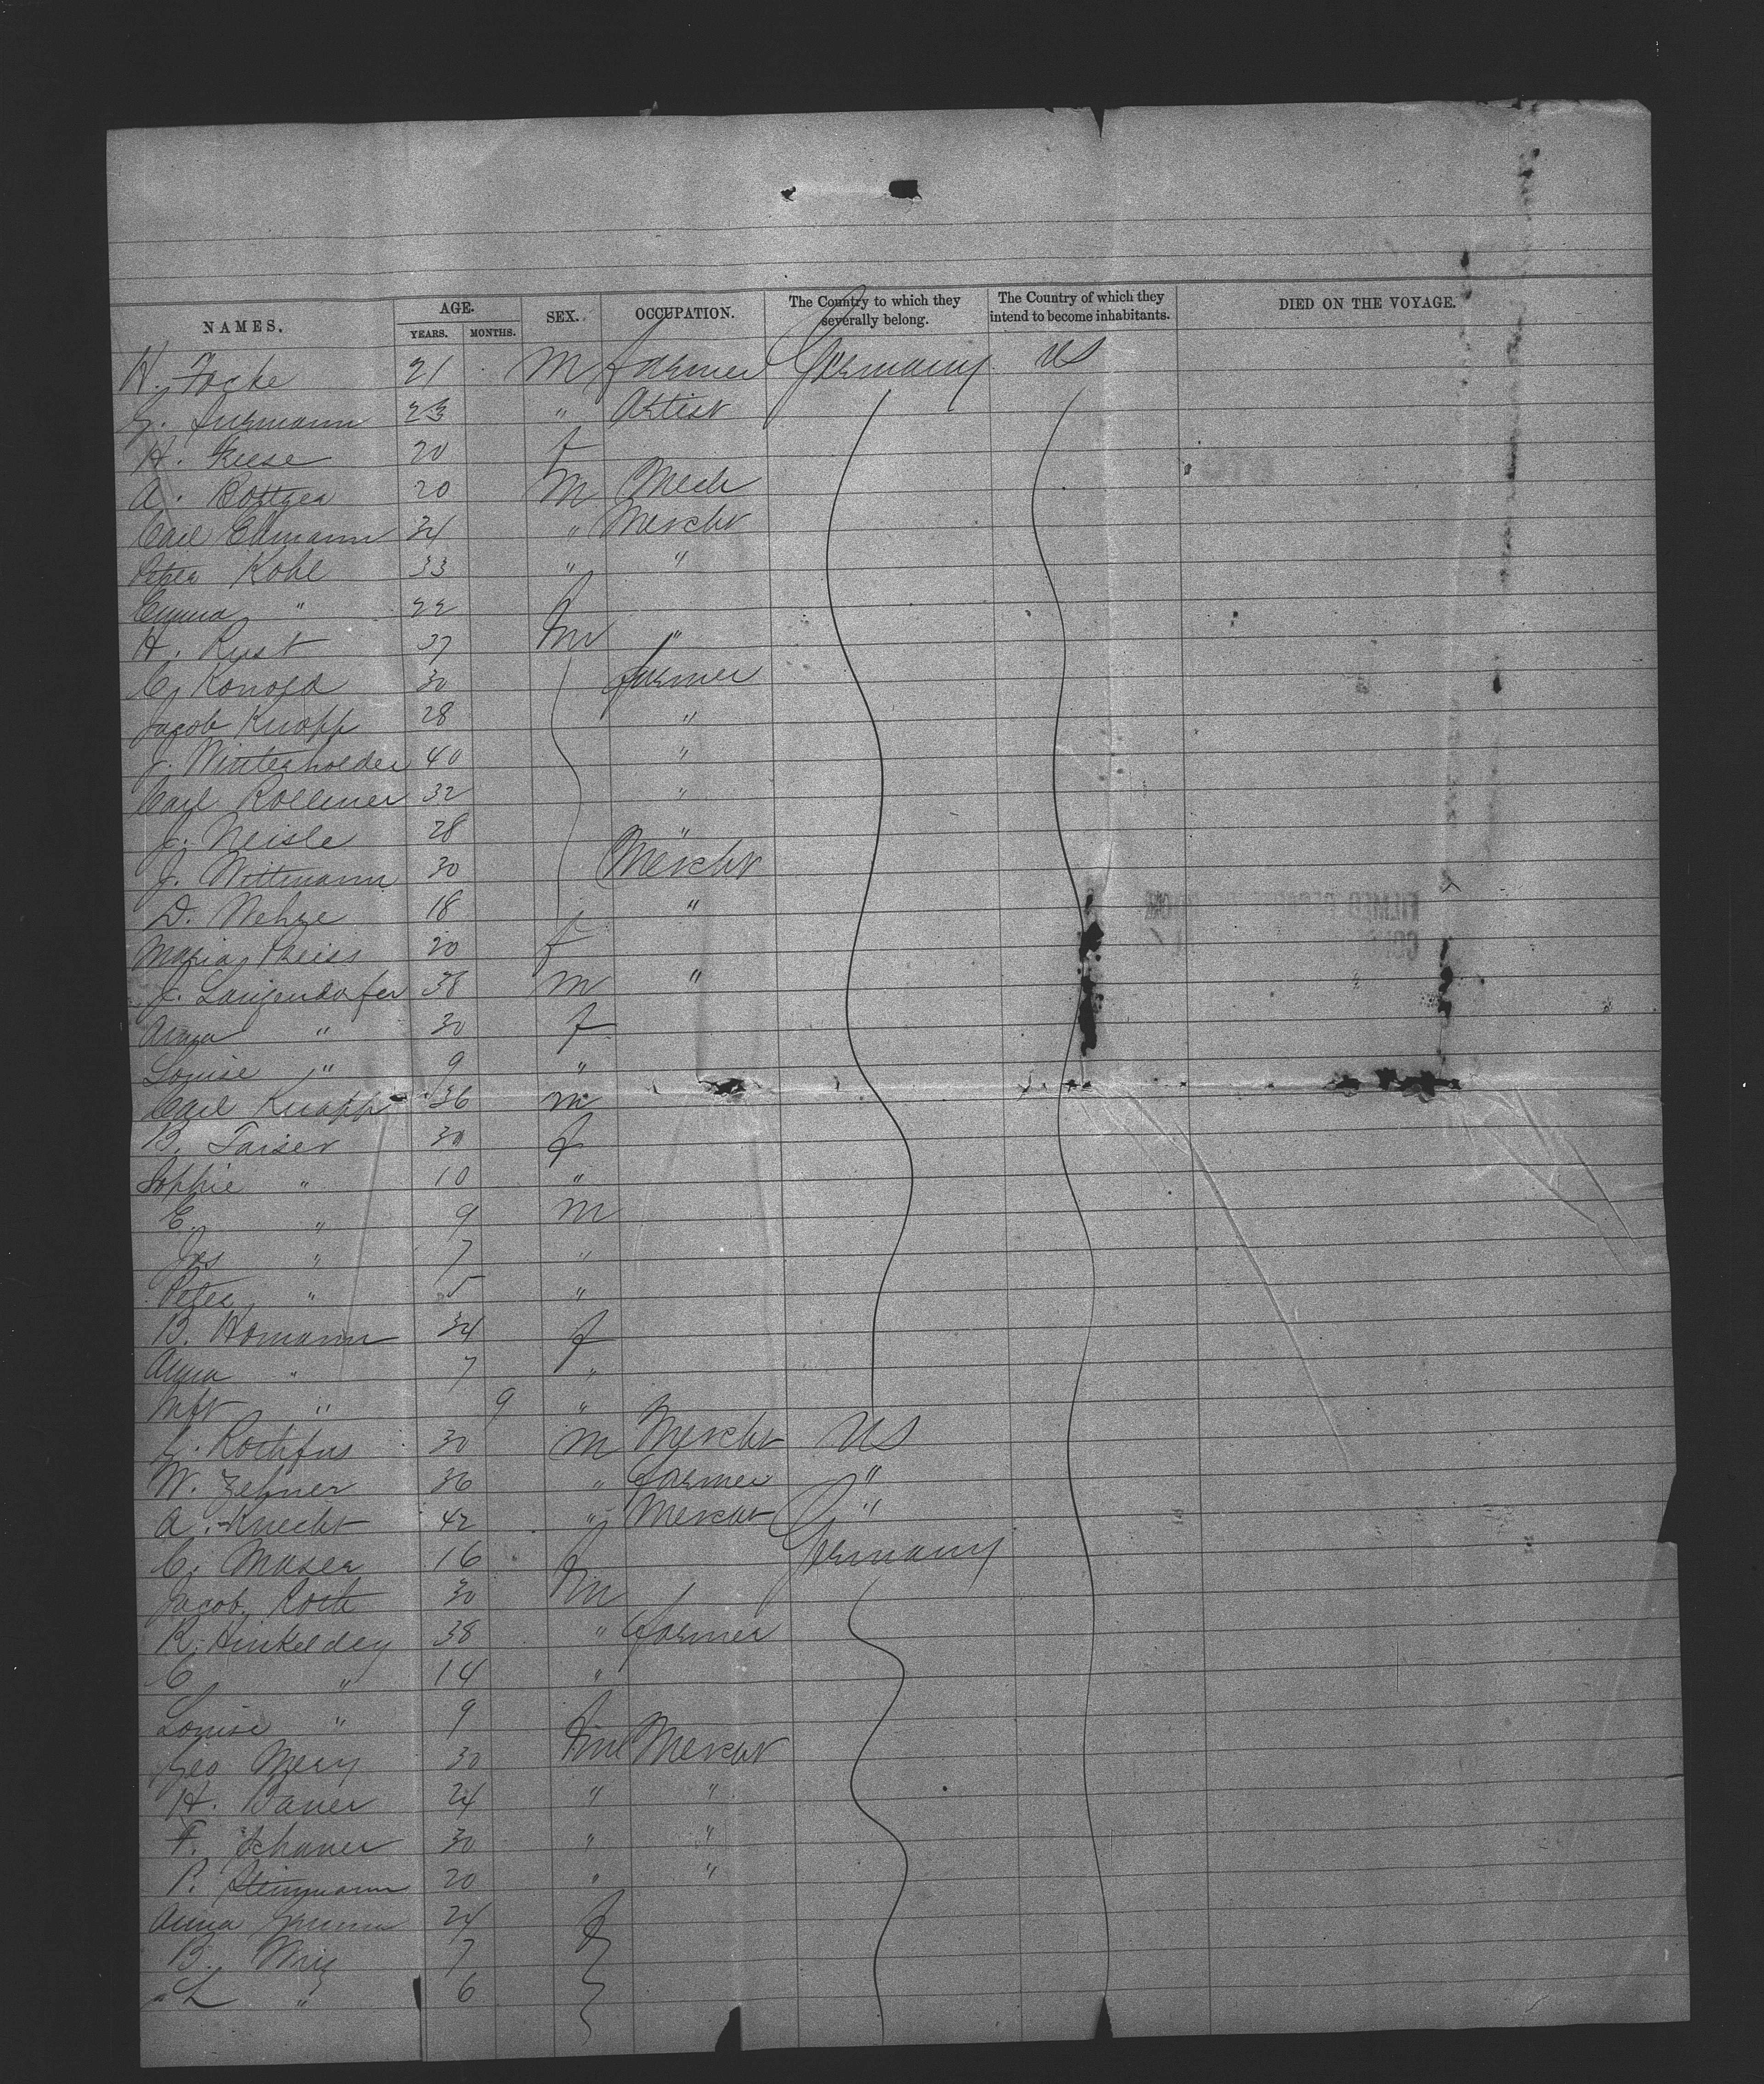 NAMES. AGE. SEX. OCCUPATION. The Country to which they severally belong. The Country of which they intend to become inhabitants. DIED ON THE VOYAGE.
YEARS. MONTHS.
H. Focke 21 M farmer Germany US
G. 23 " Artist
H. Kiese 20 f
A. Bottger 20 M Mech
Carl Ehmann 34 " Mercht
Peter Kohl 33 " "
Emma " 22 f
H. Rust 37 M "
C. Konold 30 farmer
Jacob Knapp 28 "
J. Winterholder 40 "
Carl Rollmer 32 "
J. Neisle 28 "
J. Wittmann 30 Mercht
D. Nehze 18 "
Maria Theiss 20 f
J. Langendofer 38 M "
Anna " 30 f
Louise " 9 "
Carl Knapp 36 m
B. Faiser 30 f
Sophie " 10 "
E. " 9 M
Jos " 7 "
Peter " 5 "
B. Homann 34 f
Anna " 7 "
Inft " 9 "
G. Rothfus 30 M Mercht US
W. Zehner 36 " farmer "
A. Knecht 42 " Mercht "
C. Moser 16 f Germany
Jacob Roth 30 M
R. Hinkeldey 38 " farmer
C " 14 "
Louise " 9 f
Geo Mery 30 M Mercht
H. Bauer 24 " "
F. Schauer 30 " "
P. Steinmann 20 " "
Anna 24 f
B. 7
L " 6